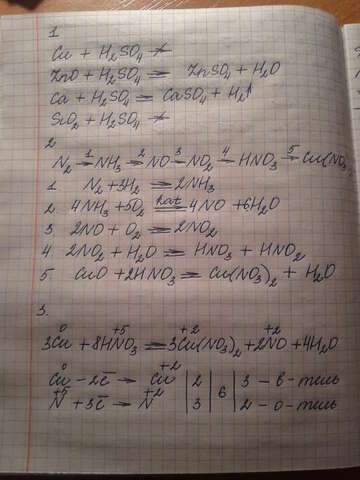 1
Cu + H₂SO₄ ↛
ZnO + H₂SO₄ = ZnSO₄ + H₂O
Ca + H₂SO₄ = CaSO₄ + H₂↑
SiO₂ + H₂SO₄ ↛
2
N₂ →¹ NH₃ →² NO →³ NO₂ →⁴ HNO₃ →⁵ Cu(NO₃
1. N₂ + 3H₂ = 2NH₃
2. 4NH₃ + 5O₂ =kat= 4NO + 6H₂O
3 2NO + O₂ = 2NO₂
4. 2NO₂ + H₂O = HNO₃ + HNO₂
5. CuO + 2HNO₃ = Cu(NO₃)₂ + H₂O
3.
0 +5 +2 +2
3Cu + 8HNO₃ = 3Cu(NO₃)₂ + 2NO + 4H₂O
0 +2
Cu − 2ē → Cu | 2 | 6 | 3 − в − тель
+5 +2
N + 3ē → N | 3 | 2 − о − тель